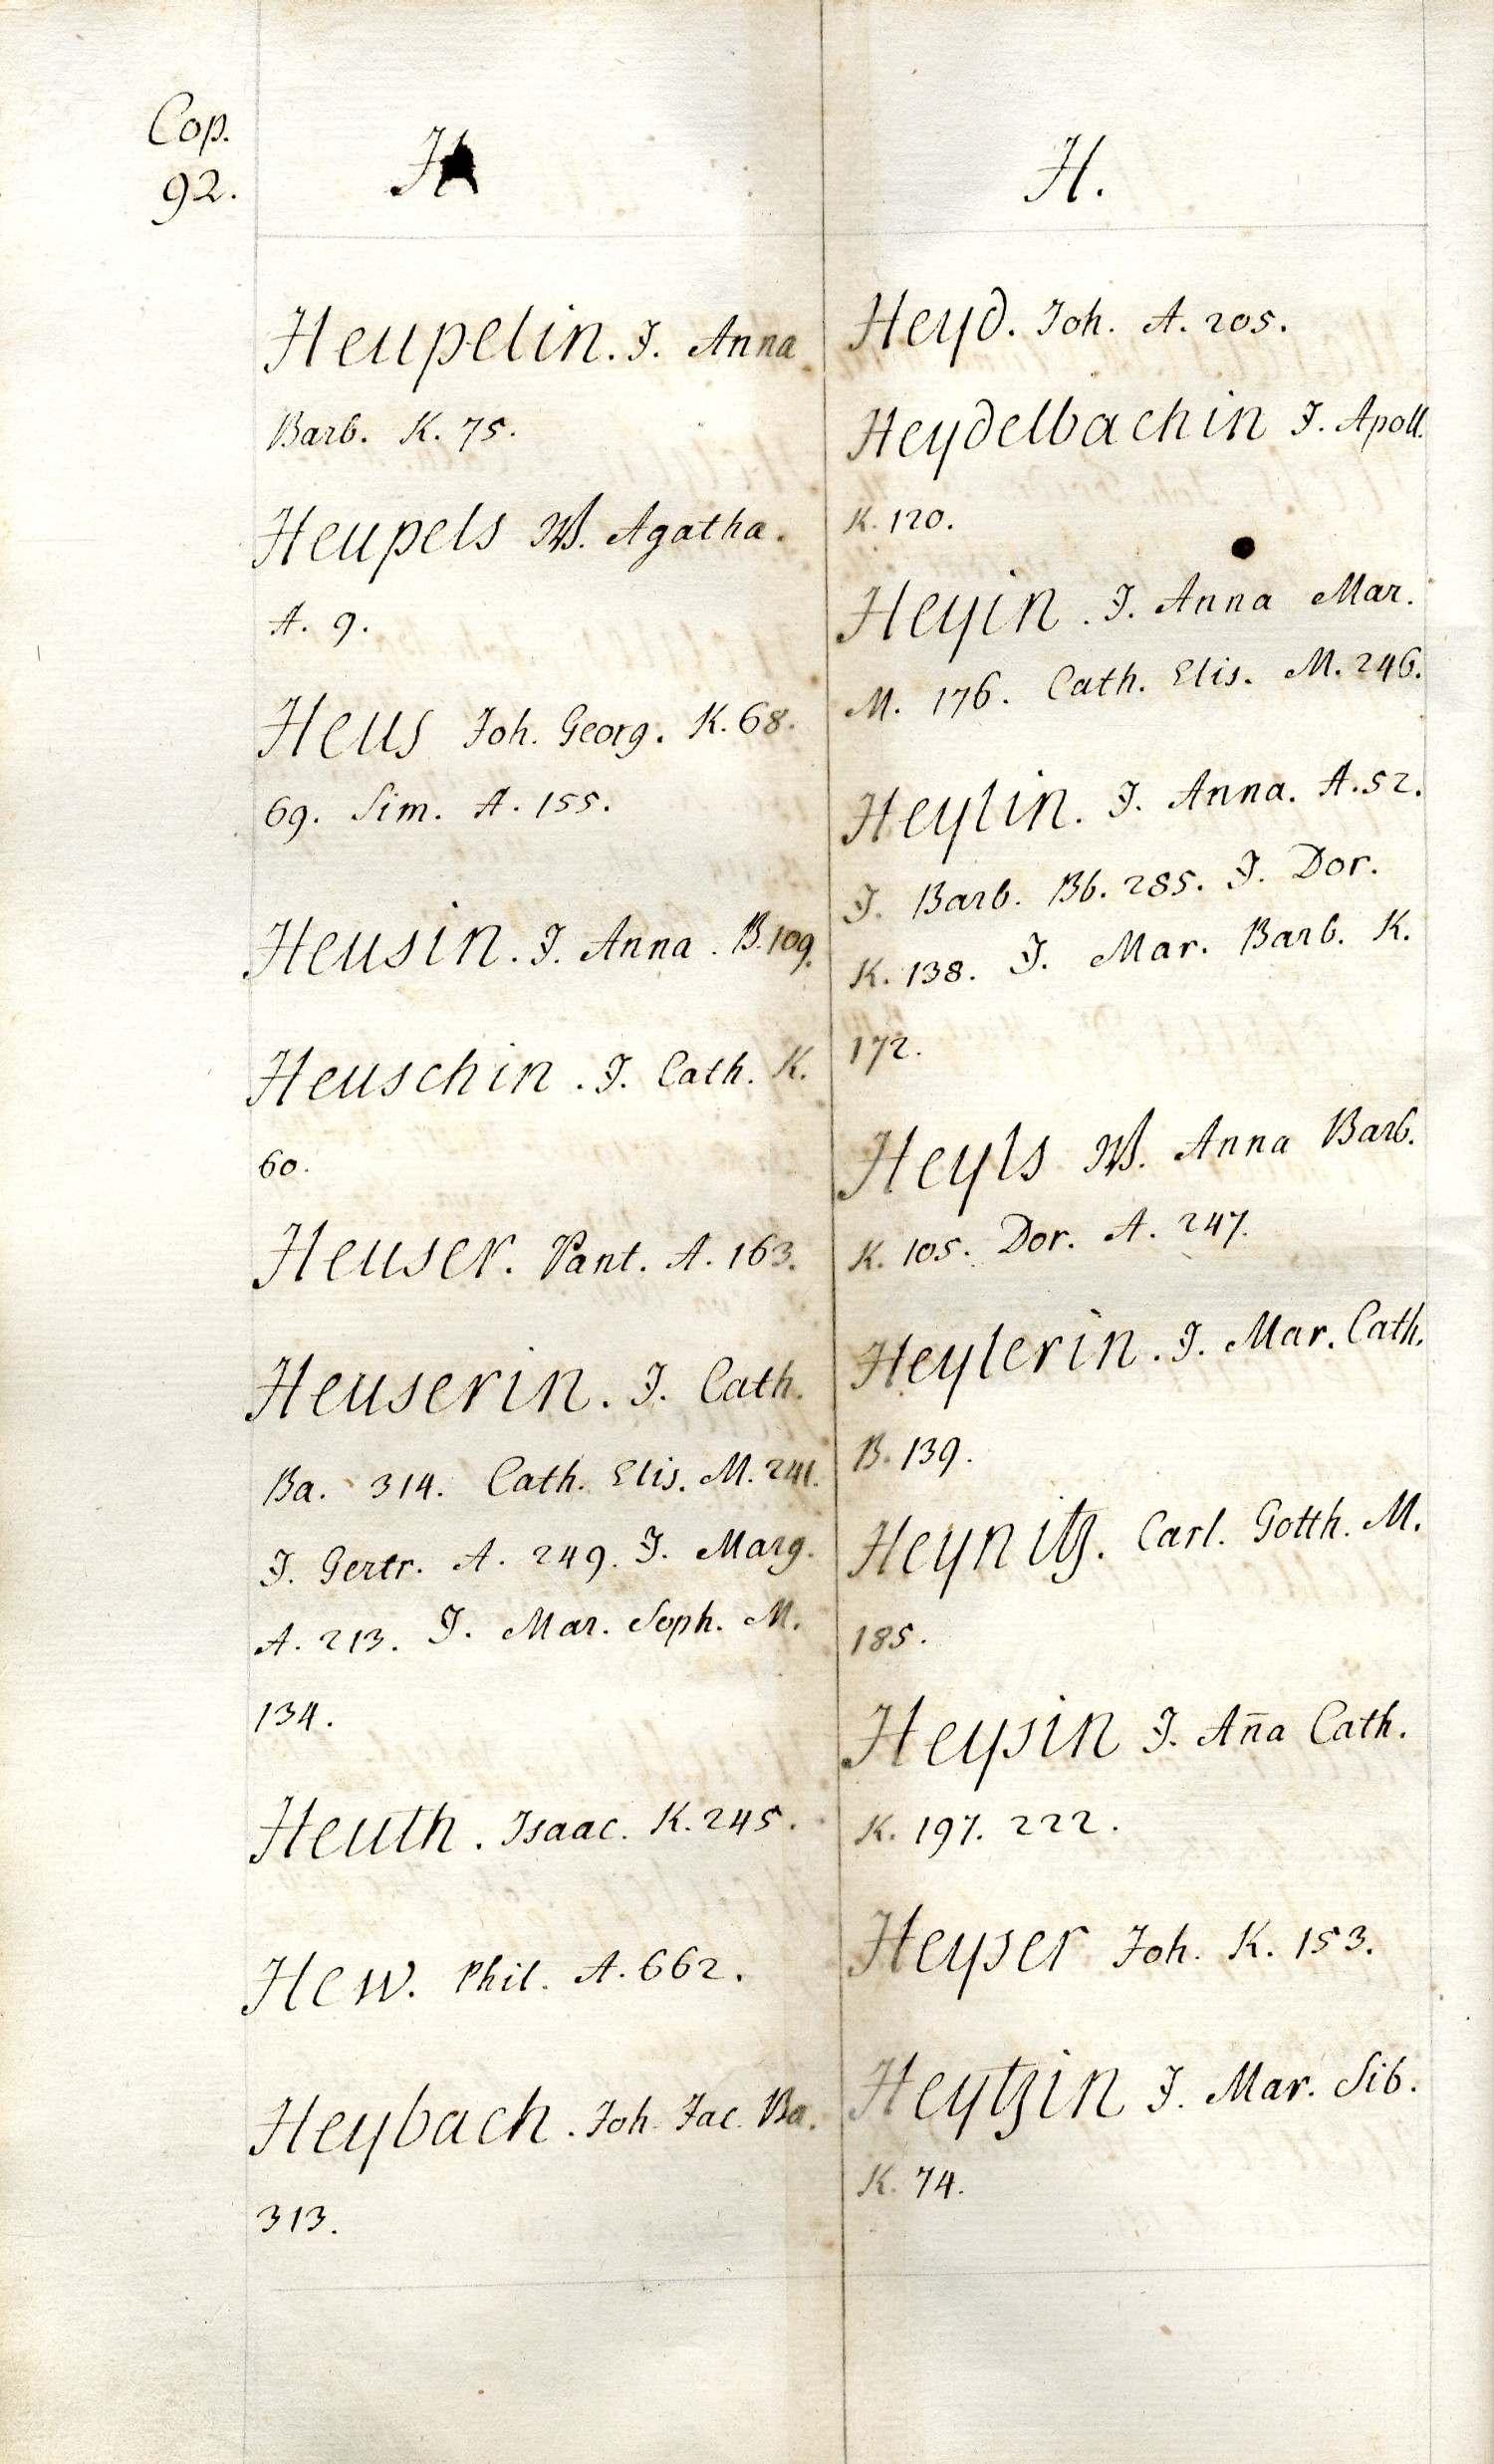 Cop.
92.
H
Heupelin. J. Anna
Barb. K. 75.
Heupels W. Agatha.
A. 9.
Heus Joh. Georg. K. 68.
69. Sim. A. 155.
Heusin. J. Anna. B. 109.
Heuschin. J. Cath. K.
60.
Heuser. Pant. A. 163.
Heuserin. J. Cath.
Ba. 314. Cath. Elis. M. 241.
J. Gertr. A. 249. J. Marg.
A. 213. J. Mar. Soph. M.
134.
Heuth. Isaac. K. 245.
Hew. Phil. A. 662.
Heybach. Joh. Jac. Ba.
313.
H.
Heyd. Joh. A. 205.
Heydelbachin J. Apoll.
K. 120.
Heyin. J. Anna Mar.
M. 176. Cath. Elis. M. 246.
Heylin. J. Anna. A. 52.
J. Barb. Bb. 285. J. Dor.
K. 138. J. Mar. Barb. K.
172.
Heyls W. Anna Barb.
K. 105. Dor. A. 247.
Heylerin. J. Mar. Cath.
B. 139.
Heynitz. Carl. Gotth. M.
185.
Heysin J. An̄a Cath.
K. 197. 222.
Heyser Joh. K. 153.
Heytzin J. Mar. Sib.
K. 74.